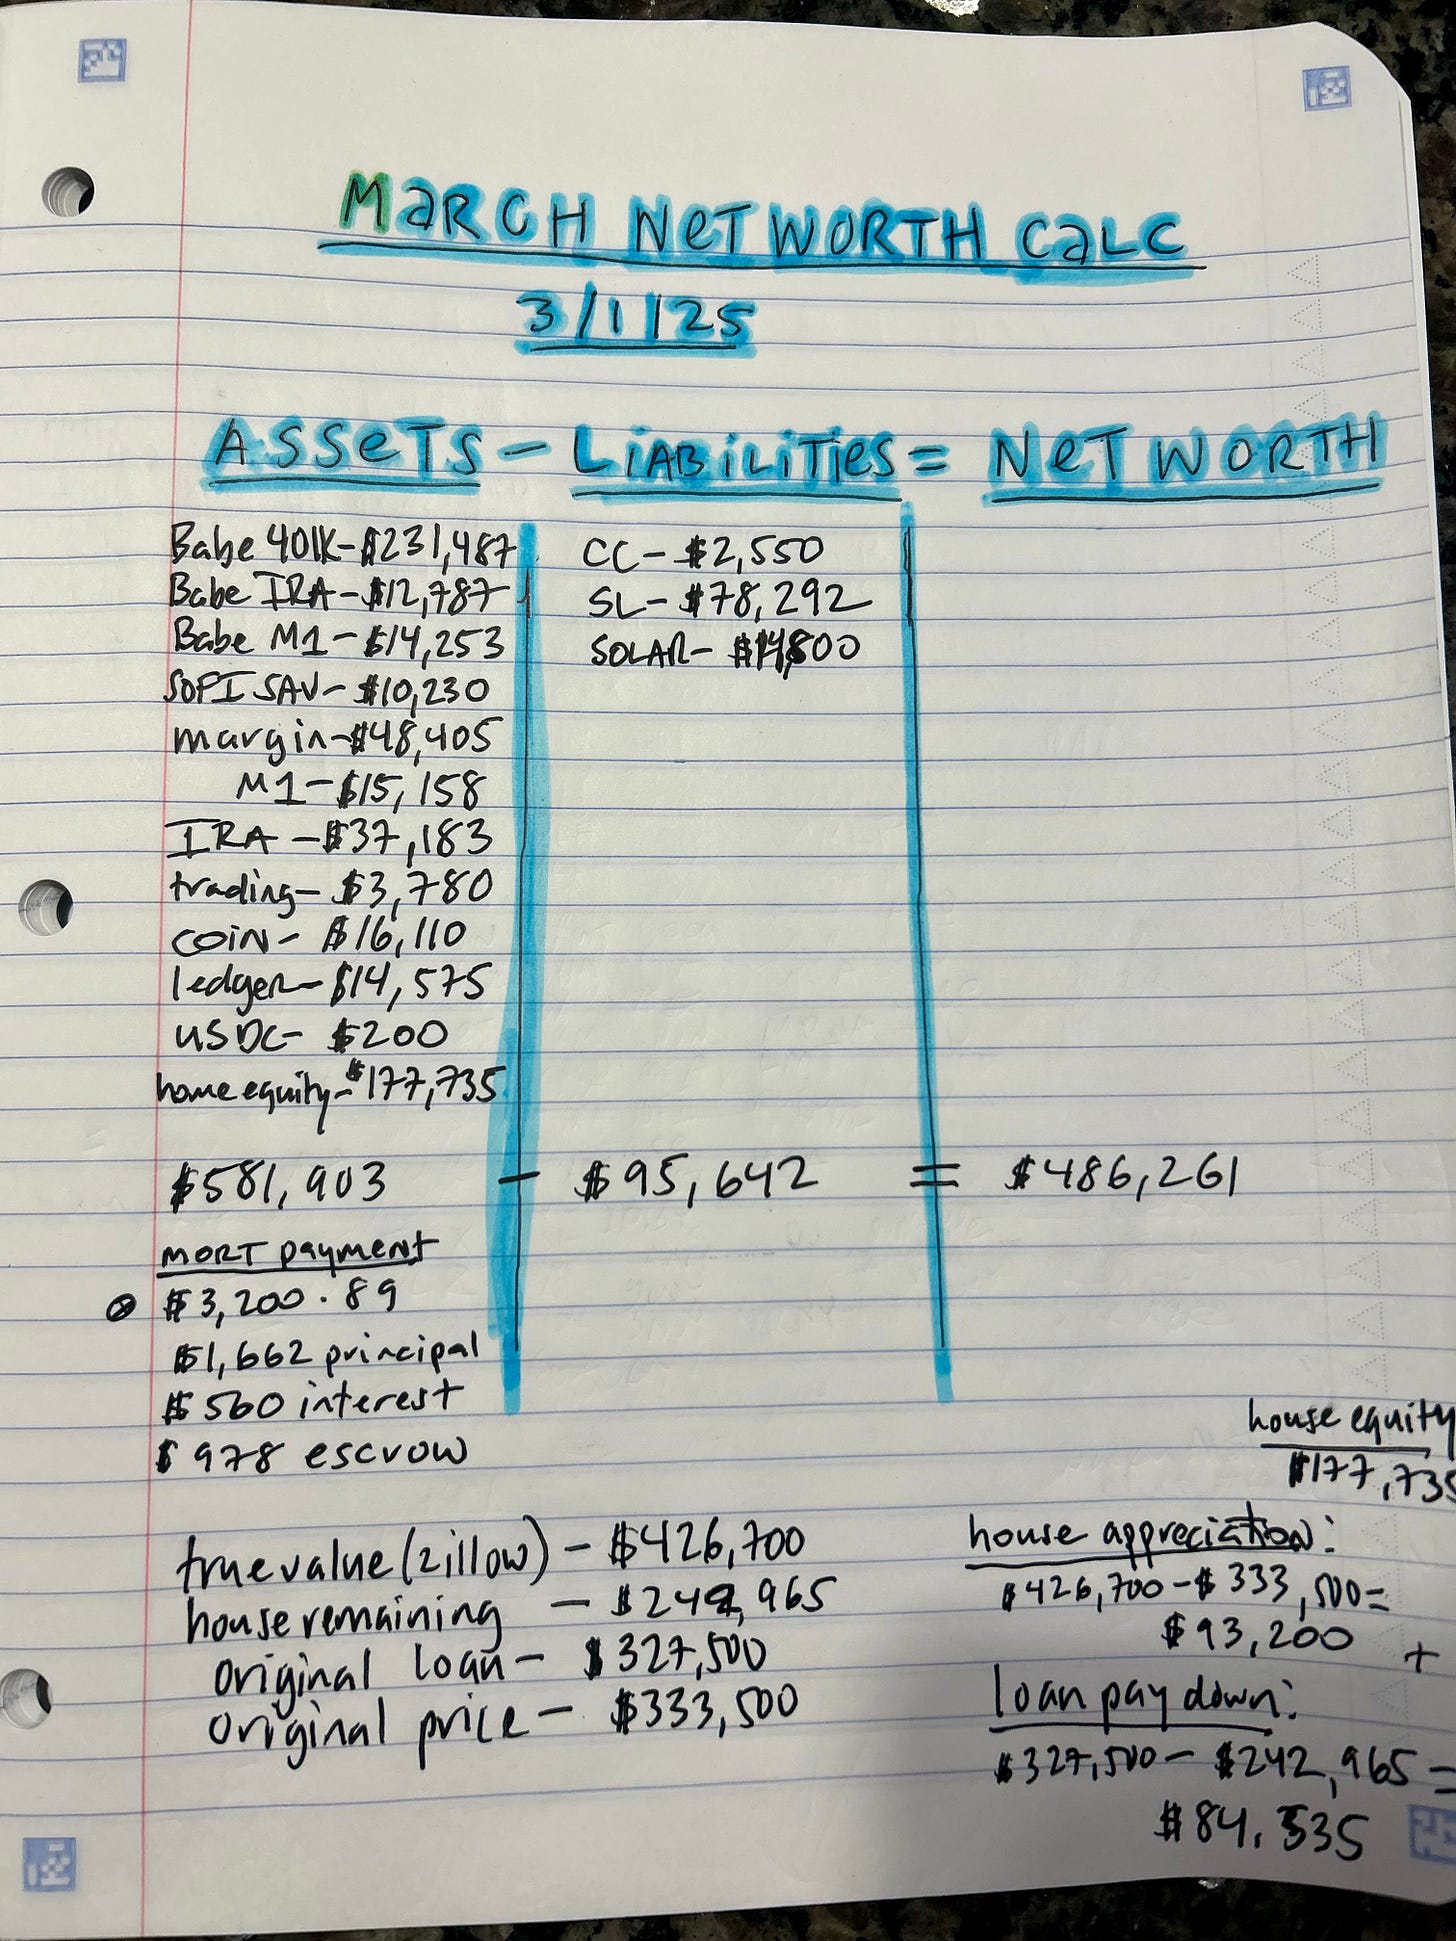 MaRCH NeT WORTH CaLC
3/1/25
ASSeTS - LiABiLiTies = NeT WORTH
Babe 401K - $231,487
Babe IRA - $12,787
Babe M1 - $14,253
SOFI SAV - $10,230
margin - $48,405
M1 - $15,158
IRA - $37,183
trading - $3,780
COIN - $16,110
ledger - $14,575
USDC - $200
home equity - $177,735
CC - $2,550
SL - $78,292
SOLAR - $14,800
$581,903 - $95,642 = $486,261
MORT payment
$3,200.89
$1,662 principal
$560 interest
$978 escrow
true value (zillow) - $426,700
house remaining - $242,965
original loan - $327,500
original price - $333,500
house equity
$177,735
house appreciation:
$426,700 - $333,500 =
$93,200 +
loan pay down:
$327,500 - $242,965 =
$84,535